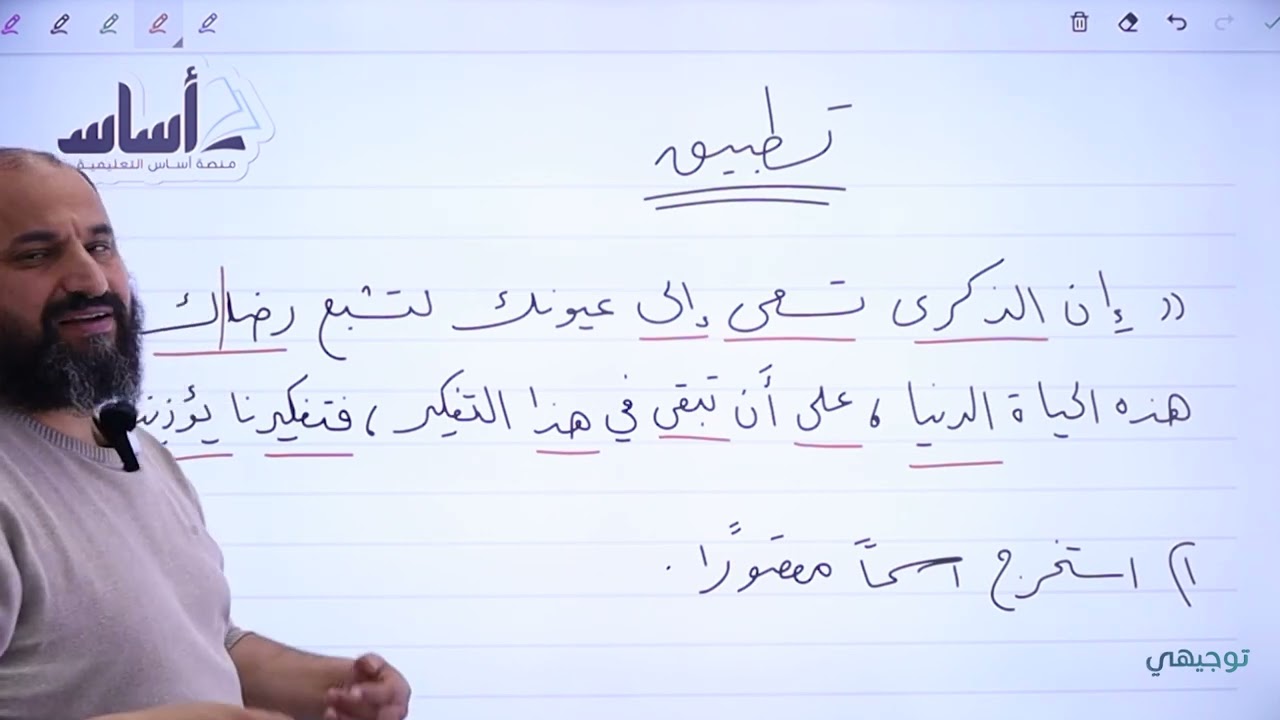 أساس
منصة أساس التعليمية
تطبيق
(( إن الذكرى تسعى إلى عيونك لتشبع رضاك
هذه الحياة الدنيا ، على أن تبقى في هذا التفكير ، فتفكيرنا
١) استخرج اسمًا مقصورًا .
توجيهي